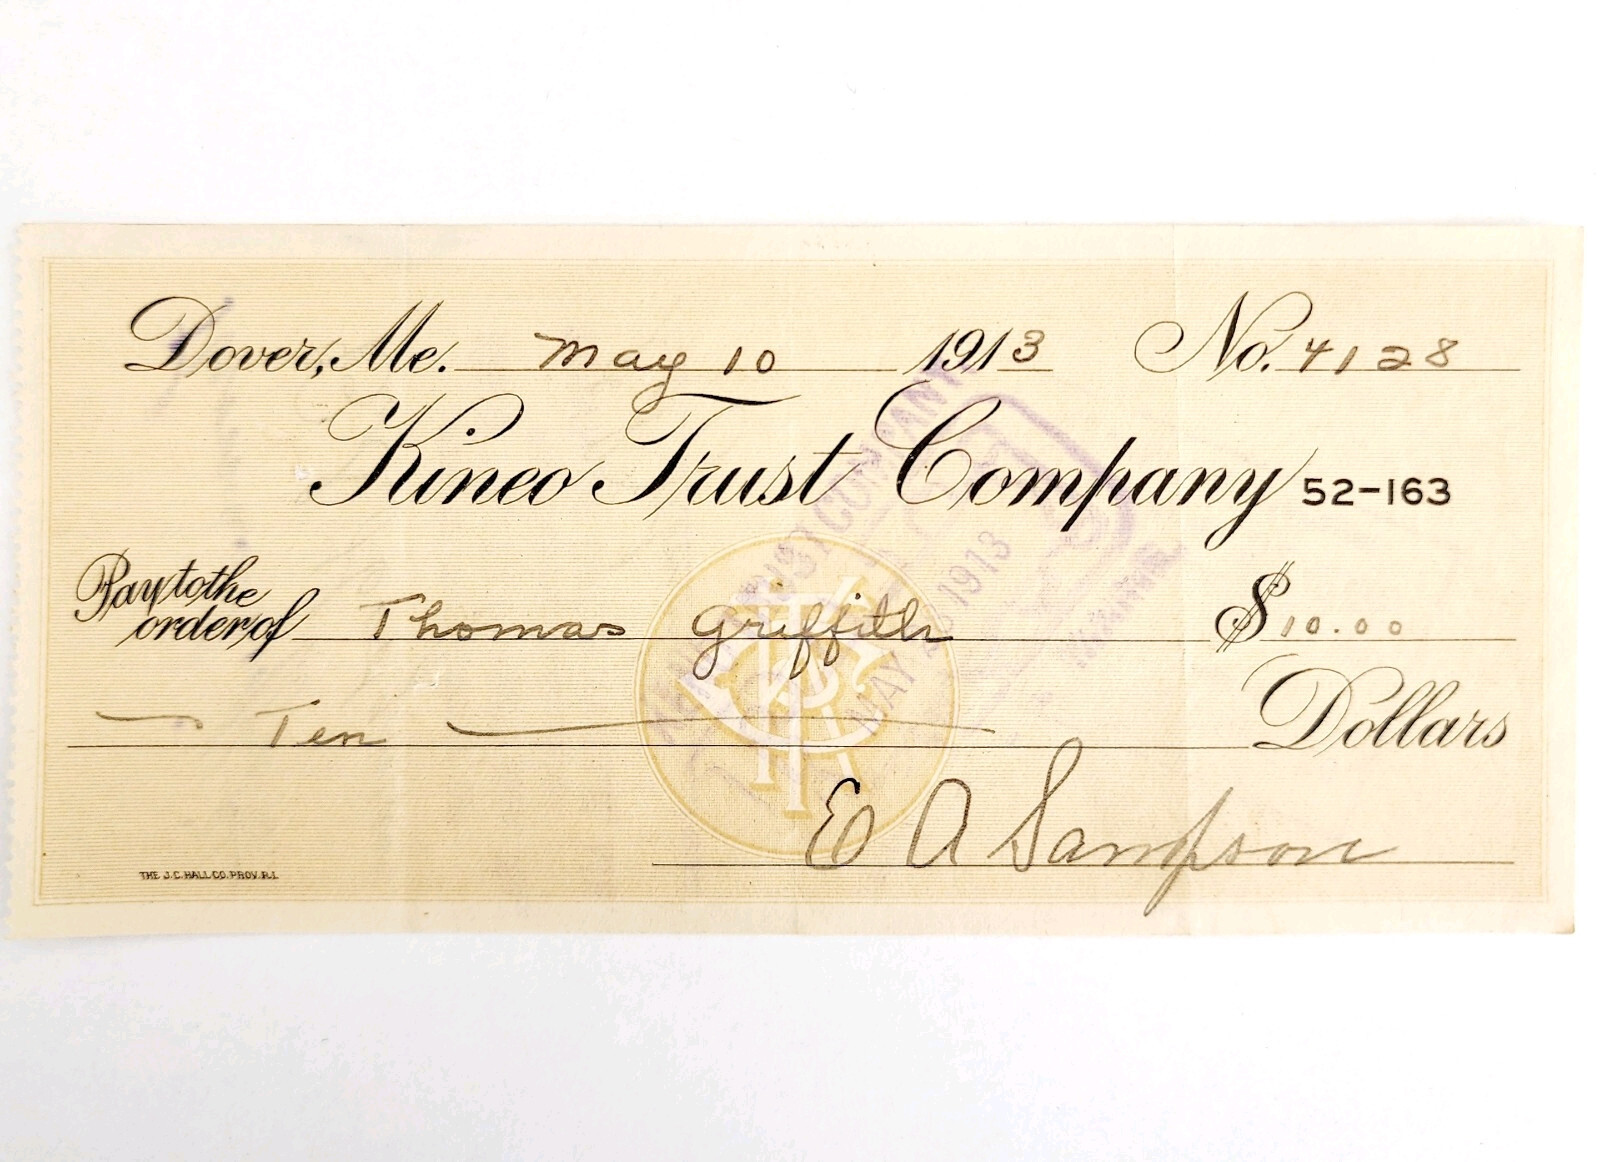 Dover, Me. May 10 1913 No. 4128
Kineo Trust Company 52-163
Pay to the order of Thomas Griffith $10.00
Ten Dollars
E A Sampson
THE J.C. HALL CO. PROV. R.I.
TRUST COMPANY
MAY 1913